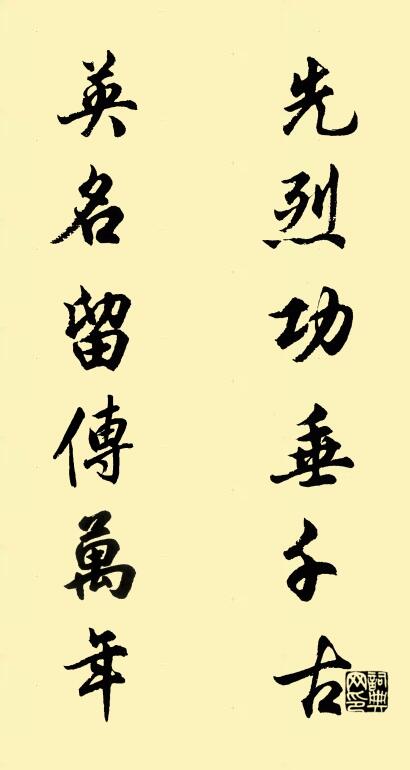 先烈功垂千古
英名留傳萬年
詞典网印